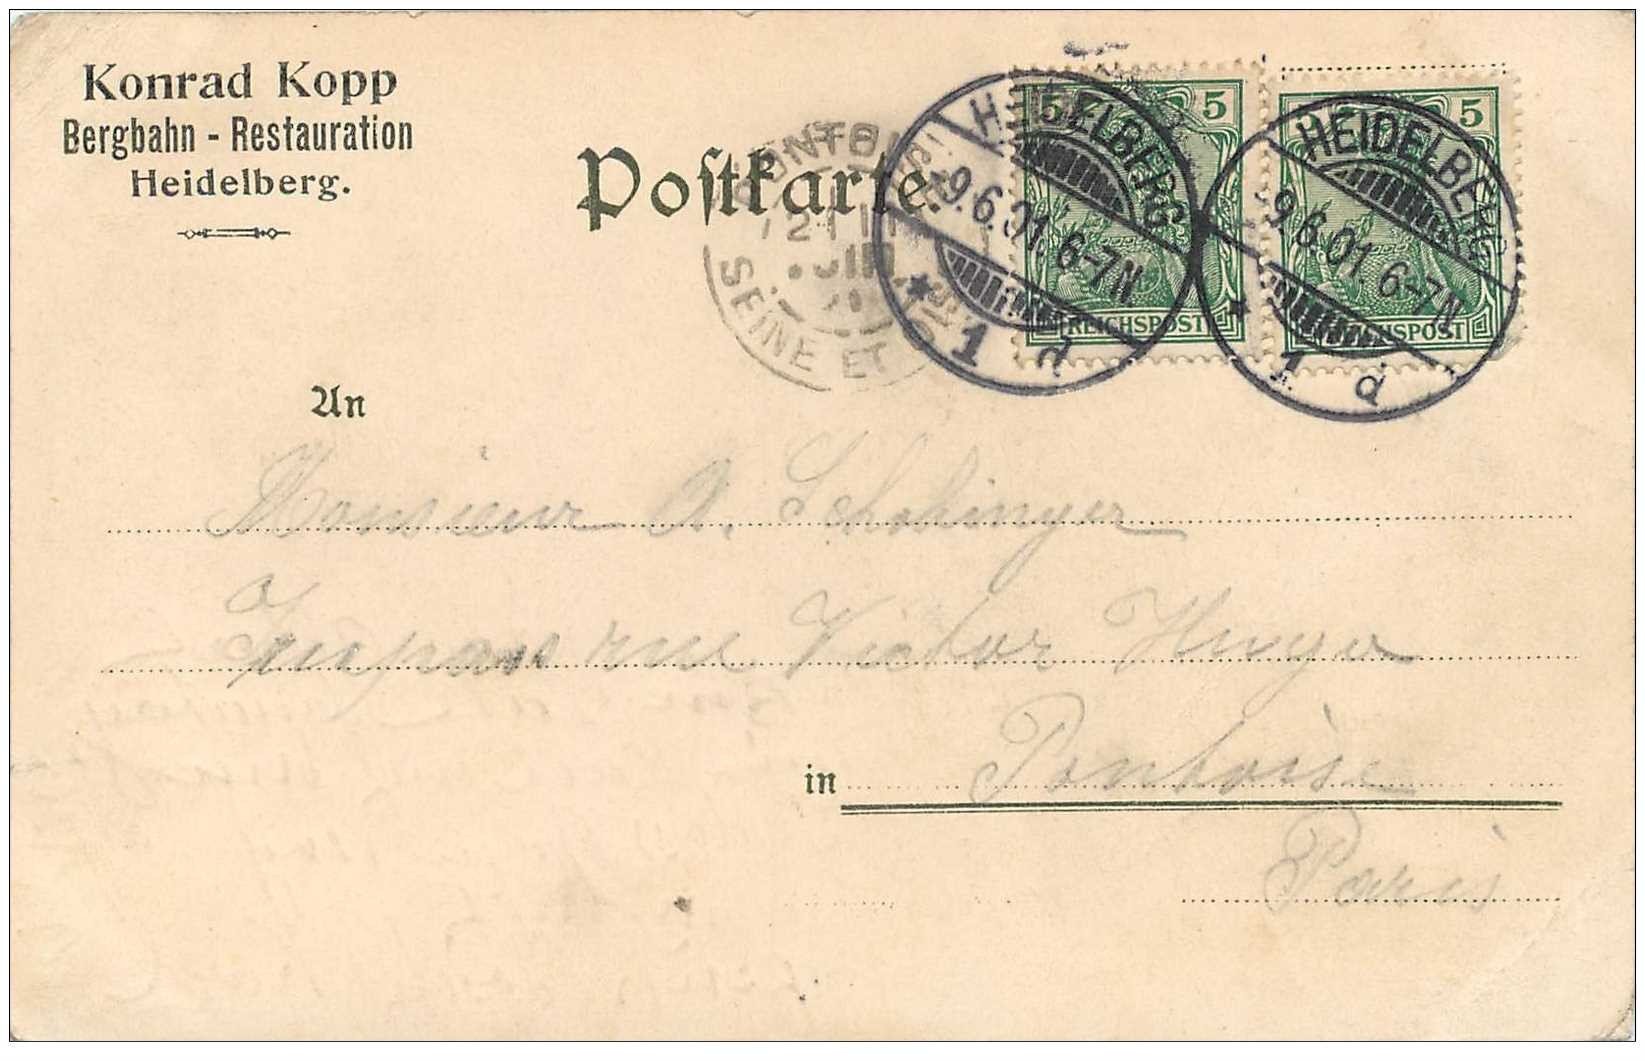 Konrad Kopp
Bergbahn - Restauration
Heidelberg.
Postkarte.
HEIDELBERG
9.6.01. 6-7N
* 1 d
HEIDELBERG
9.6.01. 6-7N
* 1 d
5 5
REICHSPOST
5 5
REICHSPOST
PONTOISE
SEINE ET
An
Monsieur A. Schohinger
Impass rue Victor Hugo
in Pontoise
Paris